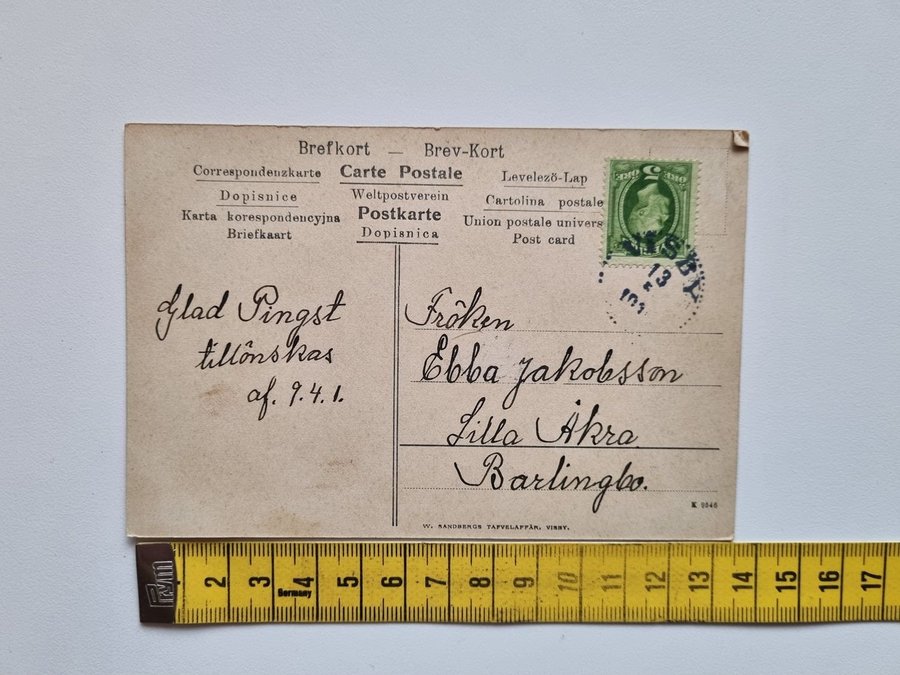 Brefkort — Brev-Kort
Correspondenzkarte Carte Postale Levelező-Lap
Dopisnice Weltpostverein Cartolina postale
Karta korespondencyjna Postkarte Union postale univers
Briefkaart Dopisnica Post card
5
ÖRE ÖRE
VISBY
13
5
Glad Pingst
tillönskas
af. 9.4.1.
Fröken
Ebba Jakobsson
Lilla Åkra
Barlingbo.
K 9546
W. SANDBERGS TAFVELAFFÄR, VISBY.
2 3 4 5 6 7 8 9 10 11 12 13 14 15 16 17
Germany